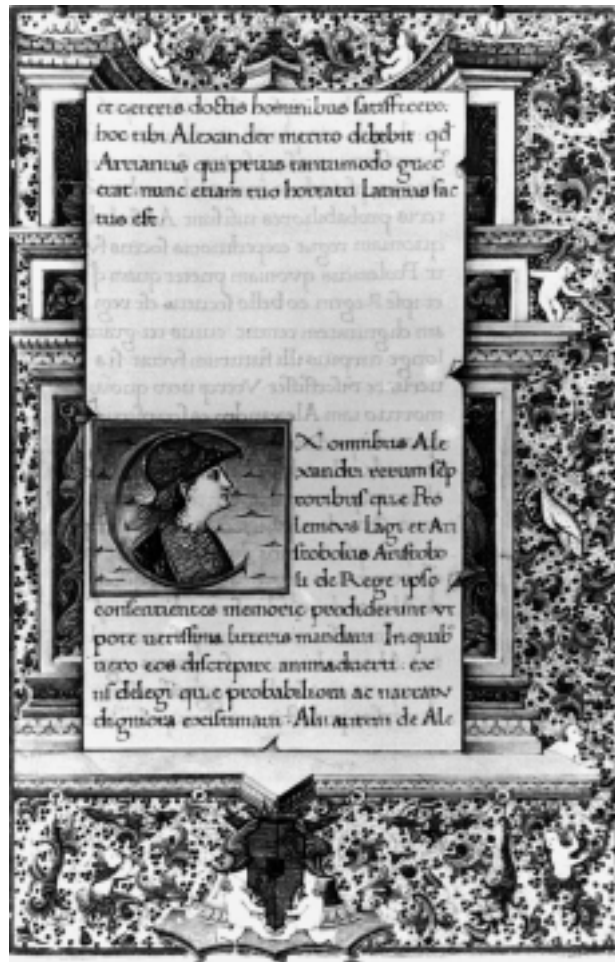 et ceteris doctis hominibus satisfecero:
hoc tibi Alexander merito debebit qd
Arrianus qui prius tantumodo grec
erat nunc etiam tuo hortatu Latinus fac
tus est
EX omnibus Ale
xandri rerum scrip
toribus que Pto
lemeus Lagi et Ari
stobolus Aristobo
li de Rege ipso
consentientes memorie prodiderunt ut
pote uerissima litteris mandaui In quib
uero eos discrepare animaduerti ex
iis delegi que probabiliora ac narratu
digniora existimaui · Alii autem de Ale